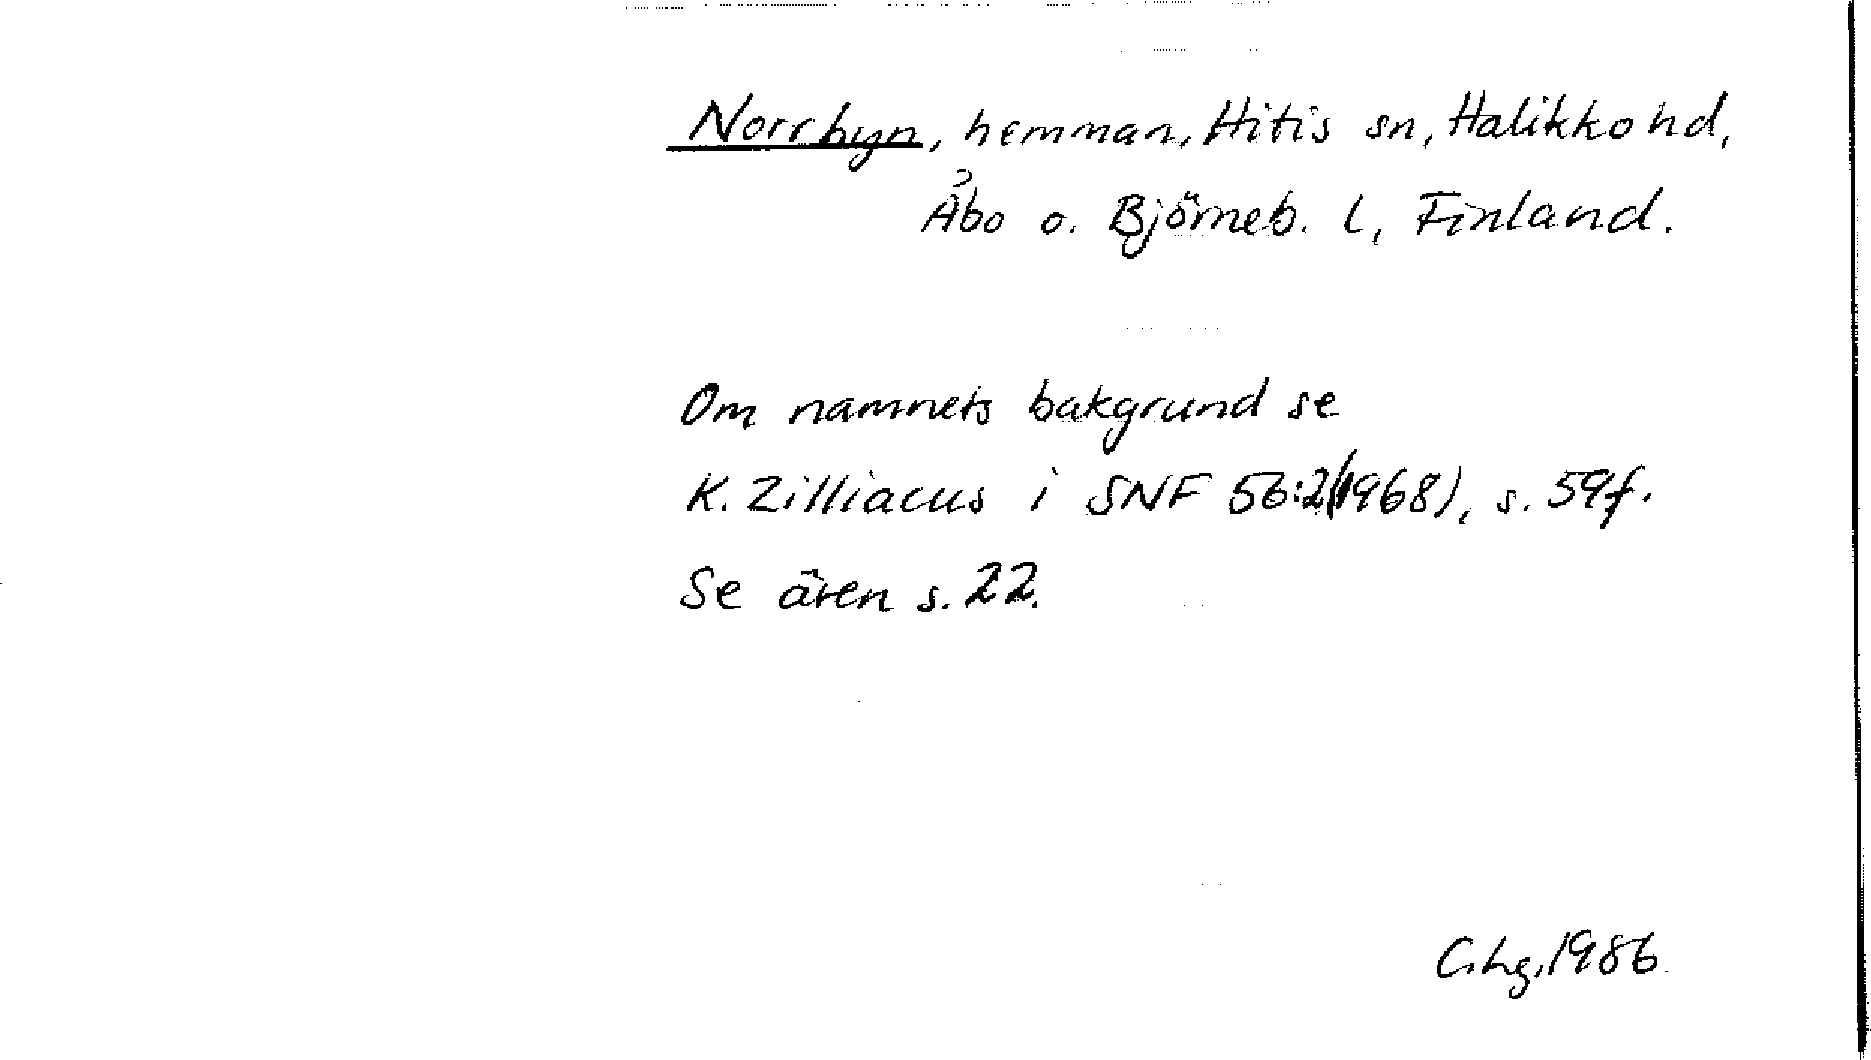 Norrbyn, hemman, Hitis sn, Halikko hd,
Åbo o. Björneb. l, Finland.
Om namnets bakgrund se
K. Zilliacus i SNF 56:2(1968), s. 59f.
Se även s. 22.
C.Lg, 1986